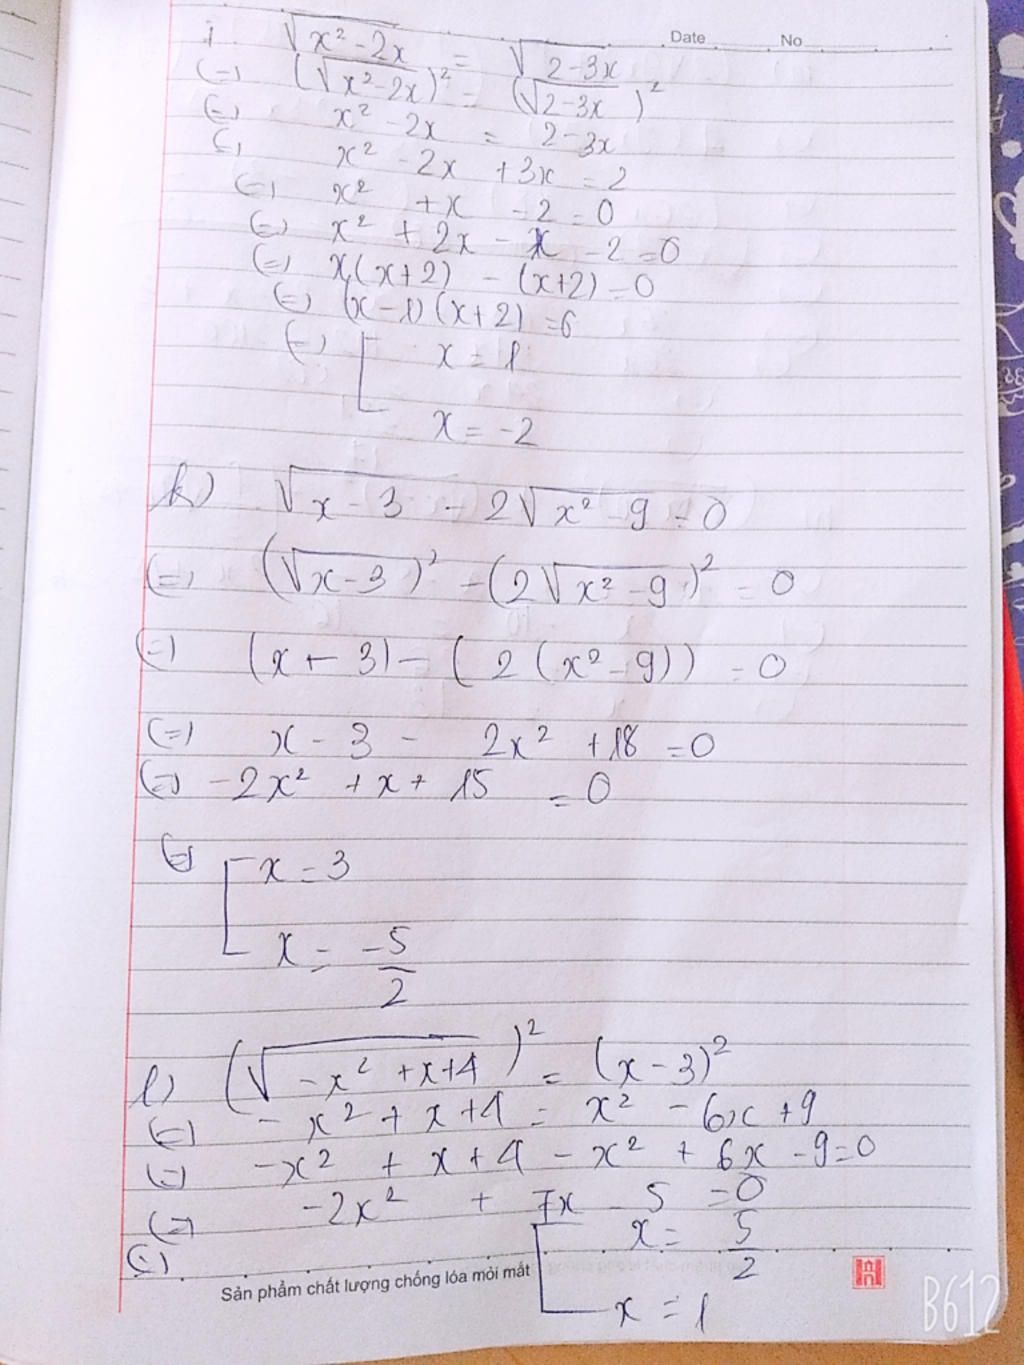 Date No
i √(x² - 2x) = √(2 - 3x)
(=) (√(x² - 2x))² = (√(2 - 3x))²
(=) x² - 2x = 2 - 3x
(=) x² - 2x + 3x = 2
(=) x² + x - 2 = 0
(=) x² + 2x - x - 2 = 0
(=) x(x+2) - (x+2) = 0
(=) (x-1)(x+2) = 6
(=) [ x = 1
x = -2
k) √(x - 3) - 2√(x² - 9) = 0
(=) (√(x - 3))² - (2√(x² - 9))² = 0
(=) (x - 3) - (2(x² - 9)) = 0
(=) x - 3 - 2x² + 18 = 0
(=) -2x² + x + 15 = 0
(=) [ x = 3
x = -5/2
l) (√(-x² + x + 4))² = (x - 3)²
(=) -x² + x + 4 = x² - 6x + 9
(=) -x² + x + 4 - x² + 6x - 9 = 0
(=) -2x² + 7x - 5 = 0
(=) [ x = 5/2
x = 1
Sản phẩm chất lượng chống lóa mỏi mắt
B612